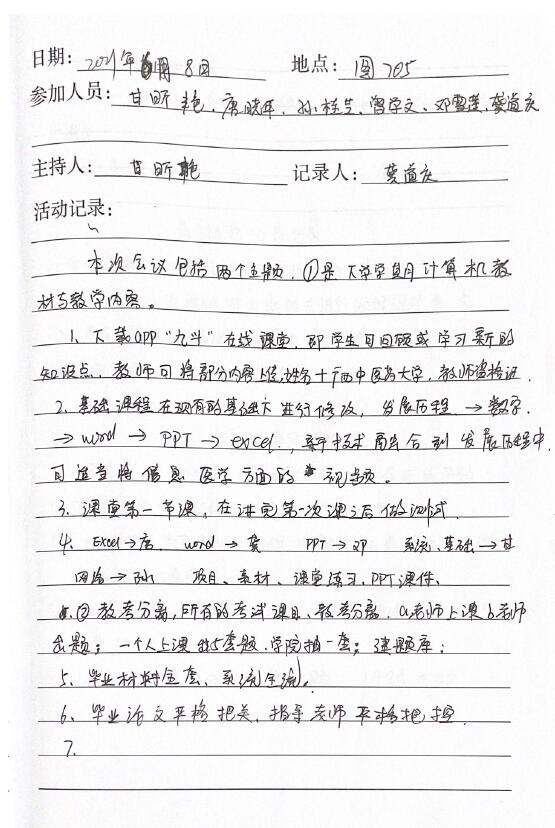 日期: 2021年 月 8日 地点: 图705
参加人员: 甘昕艳、唐晓年、孙桂芝、曾学文、邓雪莲、龚道庆
主持人: 甘昕艳 记录人: 龚道庆
活动记录:
本次会议包括两个主题,①是下学学期计算机教
材与教学内容。
1、下载app“九斗”在线课堂,即学生可回顾或学习新的
知识点,教师可将部分内容上传,姓名+广西中医药大学,教师资格证.
2、基础课程在现有的基础下进行修改,发展历程→数字.
→word→PPT→excel.,新技术融合到发展历程中,
可适当将信息医学方面的 视频。
3、课堂第一节课,在讲完第一次课之后做测试.
4、Excel→唐、word→龚 PPT→邓 系统、基础→甘
网络→孙、项目、素材、课堂练习、PPT课件、
②教考分离,所有的考试课目、教考分离.a老师上课b老师
出题; 一个人上课 5套题.学院抽一套; 建题库;
5、毕业材料 套、系统 .
6、毕业论文严格把关,指导老师严格把控.
7.